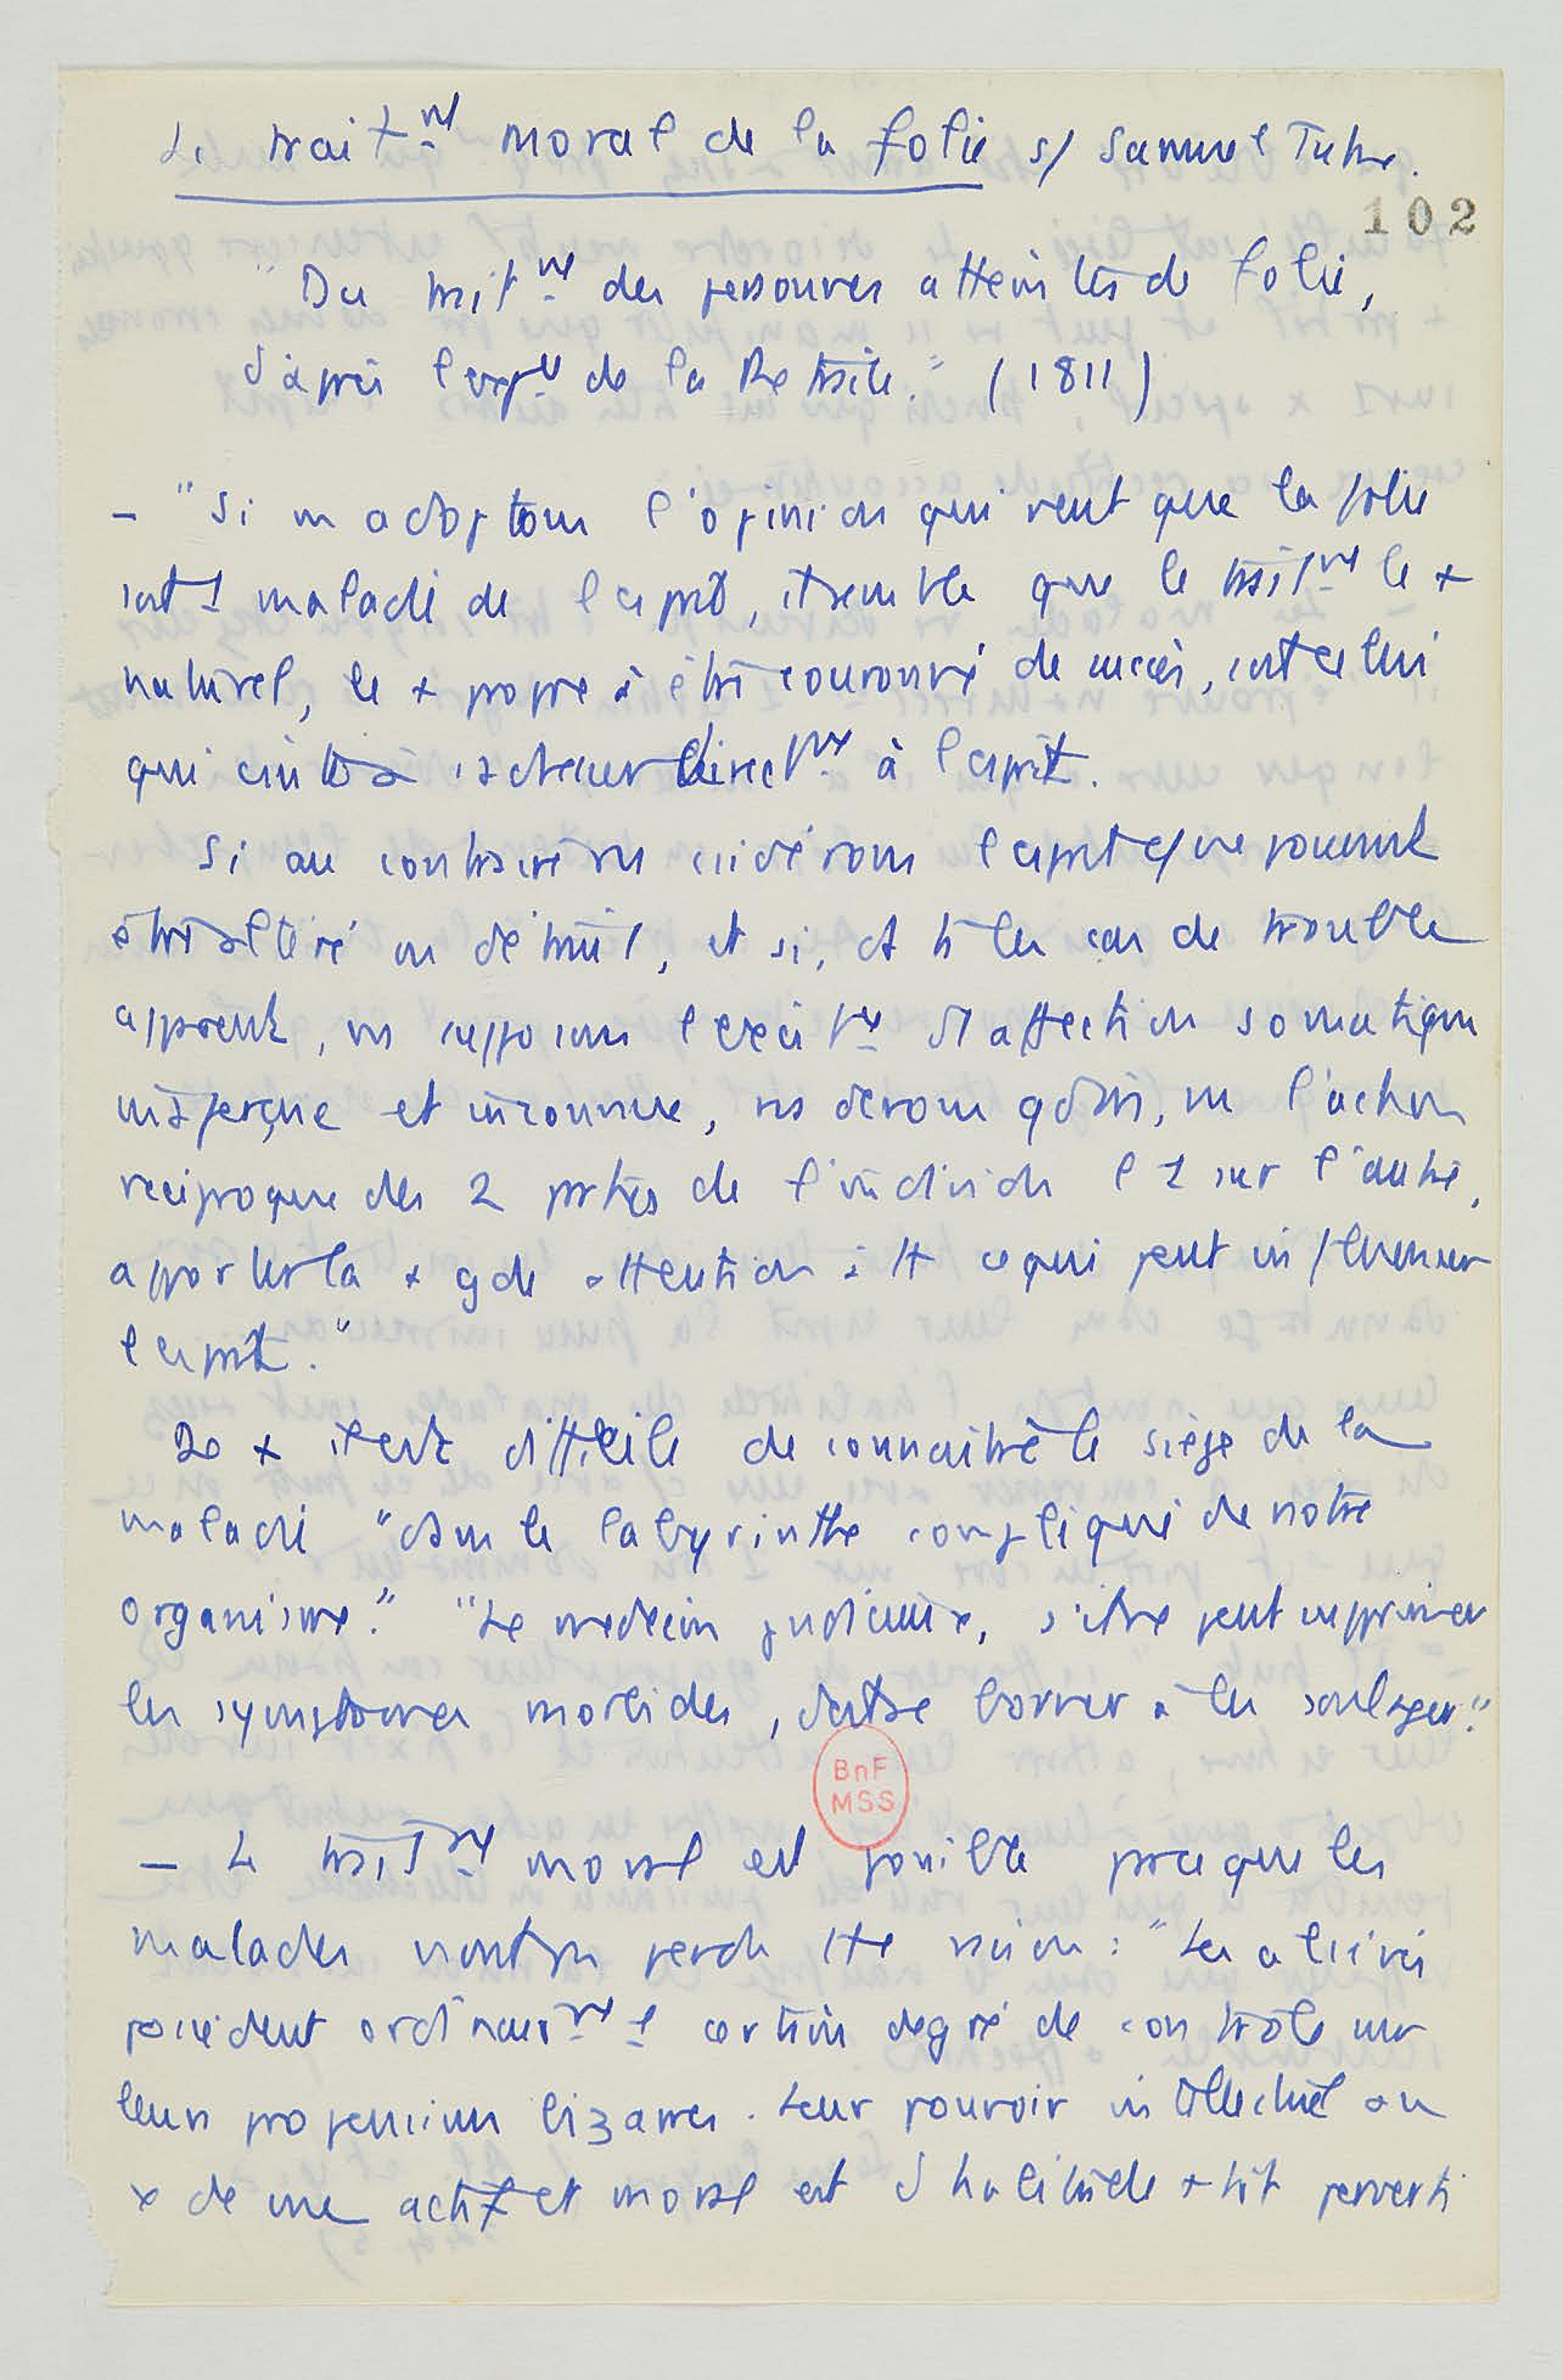 Le trait^nt moral de la folie s/ Samuel Tuke.
102
"Du trait^nt des personnes atteintes de folie,
d'après l'exp^ce de la Retraite." (1811)
- "Si ns adoptons l'opinion qui veut que la folie
soit 1 maladie de l'esprit, il semble que le trait^nt le +
naturel, le + propre à être couronné de succès, soit celui
qui à s'adresser direct^nt à l'esprit.
Si au contraire ns l'esprit c/ ne pouvant
être altéré ou détruit, et si, ds ts les cas de trouble
apparent, ns supposons d'1 affection somatique
inaperçue et inconnue, ns devons qd m̂, vu l'action
réciproque des 2 parties de l'individu l'1 sur l'autre,
apporter la + gde attention à tt ce qui peut influencer
l'esprit."
De + il est difficile de connaître le siège de la
maladie "dans le labyrinthe compliqué de notre
organisme." "Le médecin judicieux, s'il ne peut supprimer
les symptômes morbides, doit se borner à les soulager."
BnF
MSS
- Le trait^nt moral est possible parce que les
malades n'ont pas perdu tte raison : "Les aliénés
possèdent ordinair^nt 1 certain degré de contrôle sur
leurs propensions bizarres. Leur pouvoir intellectuel ou
actif et moral est d'habitude + tôt perverti